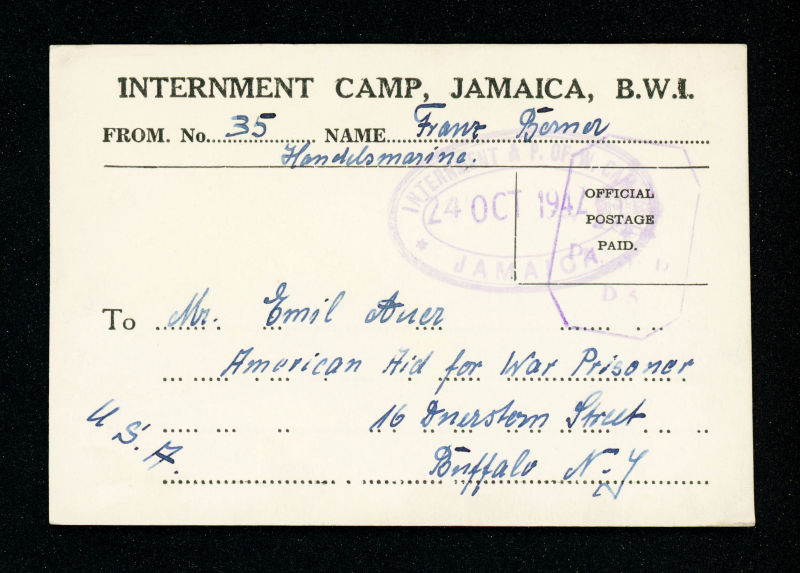 INTERNMENT CAMP, JAMAICA, B.W.I.
FROM. No. 35 NAME Franz Berner
Handelsmarine.
INTERNMENT & P. OF W. CAMP
24 OCT 194
JAMAICA
OFFICIAL
POSTAGE
PAID.
To Mr. Emil Auer
American Aid for War Prisoner
16 Street
Buffalo N-Y
U.S.A.